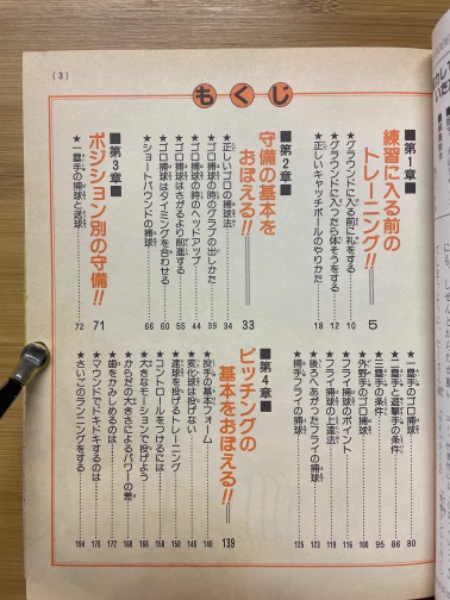 (3)
もくじ
■第1章■
練習に入る前の
トレーニング!! 5
★グラウンドに入る前に礼をする 10
★グラウンドに入ったら体そうをする 12
★正しいキャッチボールのやりかた 18
■第2章■
守備の基本を
おぼえる!! 33
★正しいゴロの捕球法 34
★ゴロ捕球の時のグラブの出しかた 39
★ゴロ捕球の時のヘッドアップ 44
★ゴロ捕球はさがるより前進する 55
★ゴロ捕球はタイミングを合わせる 60
★ショートバウンドの捕球 66
■第3章■
ポジション別の守備!! 71
★一塁手の捕球と送球 72
★一塁手のゴロ捕球 80
★二塁手と遊撃手の条件 86
★三塁手の条件 95
★外野手のゴロ捕球 108
★フライ捕球のポイント 116
★フライ捕球の上達法 118
★後ろへあがったフライの捕球 123
★捕手フライの捕球 125
■第4章■
ピッチングの
基本をおぼえる!! 139
★投手の基本フォーム 140
★変化球は投げない 146
★速球を投げるトレーニング 150
★コントロールをつけるには 158
★大きなモーションで投げよう 166
★からだの大きさによるパワーの差 168
★歯をかみしめるのは 172
★マウンドでドキドキするのは 176
★さいごのランニングをする 194